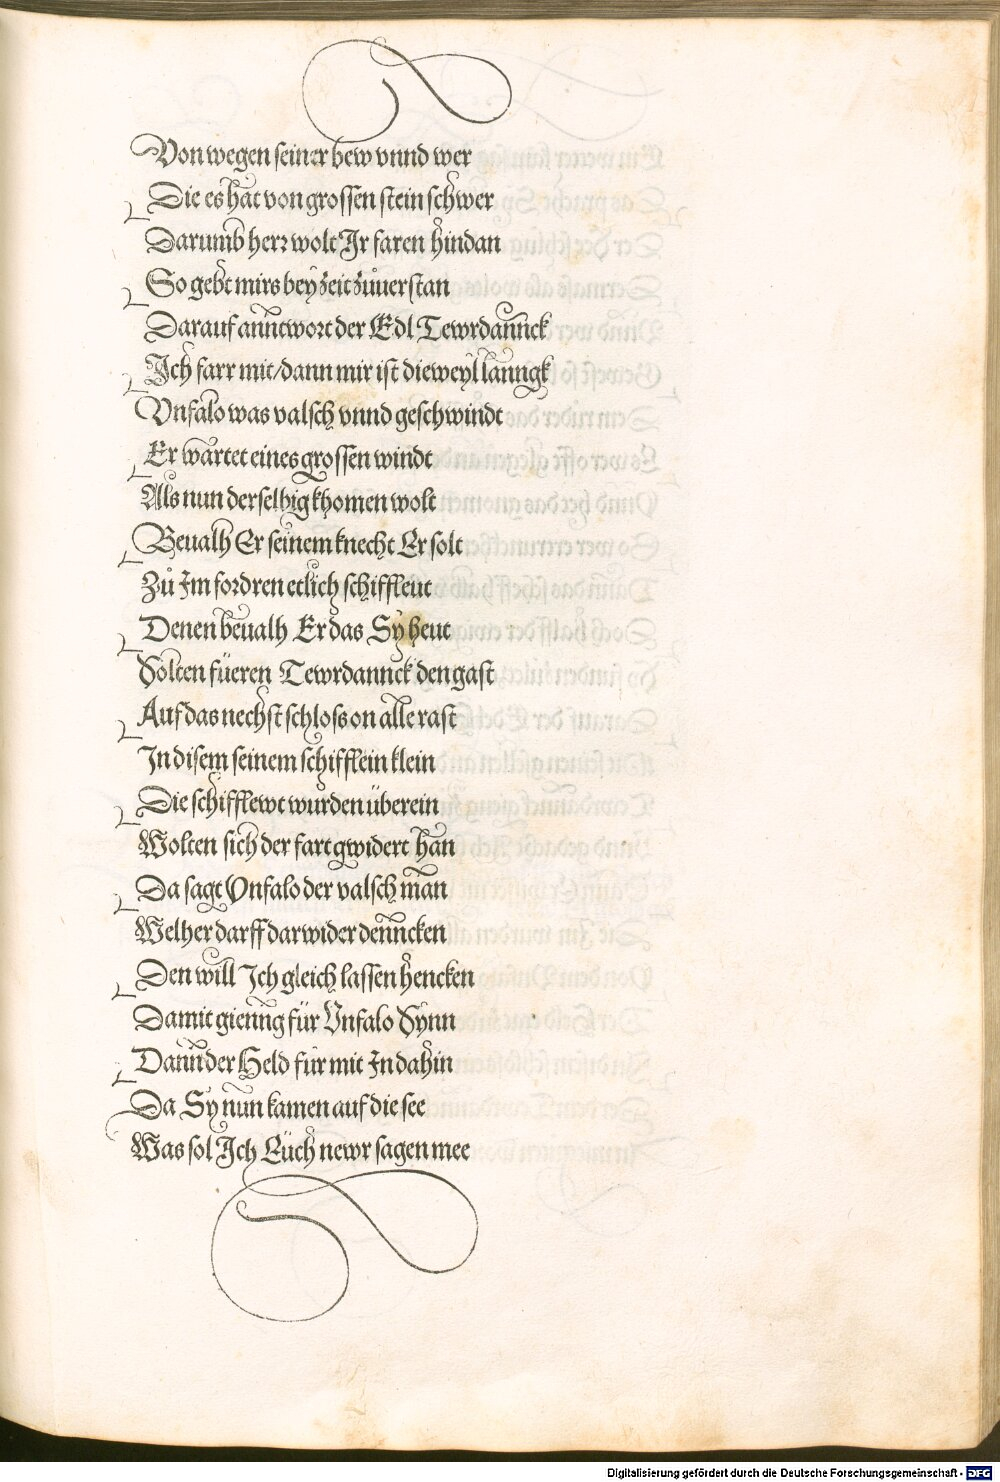 Von wegen seiner bew vnnd wer
Die es hat von grossen stein schwer
Darumb herr wolt Ir faren hindan
So gebt mirs bey zeit zůuerstan
Darauf anntwort der Edl Tewrdannck
Ich farr mit/dann mir ist dieweyl lanngk
Vnfalo was valsch vnnd geschwindt
Er wartet eines grossen windt
Als nun derselbig khomen wolt
Beualh Er seinem knecht Er solt
Zů Im fordren etlich schiffleut
Denen beualh Er das Sy heut
Solten füeren Tewrdannck den gast
Auf das nechst schloss on alle rast
In disem seinem schifflein klein
Die schifflewt wurden überein
Wolten sich der fart gwidert han
Da sagt Vnfalo der valsch man
Welher darff darwider denncken
Den will Ich gleich lassen hencken
Damit gienng für Vnfalo Synn
Dann der Held für mit In dahin
Da Sy nun kamen auf die see
Was sol Ich Eüch newr sagen mee
Digitalisierung gefördert durch die Deutsche Forschungsgemeinschaft - DFG